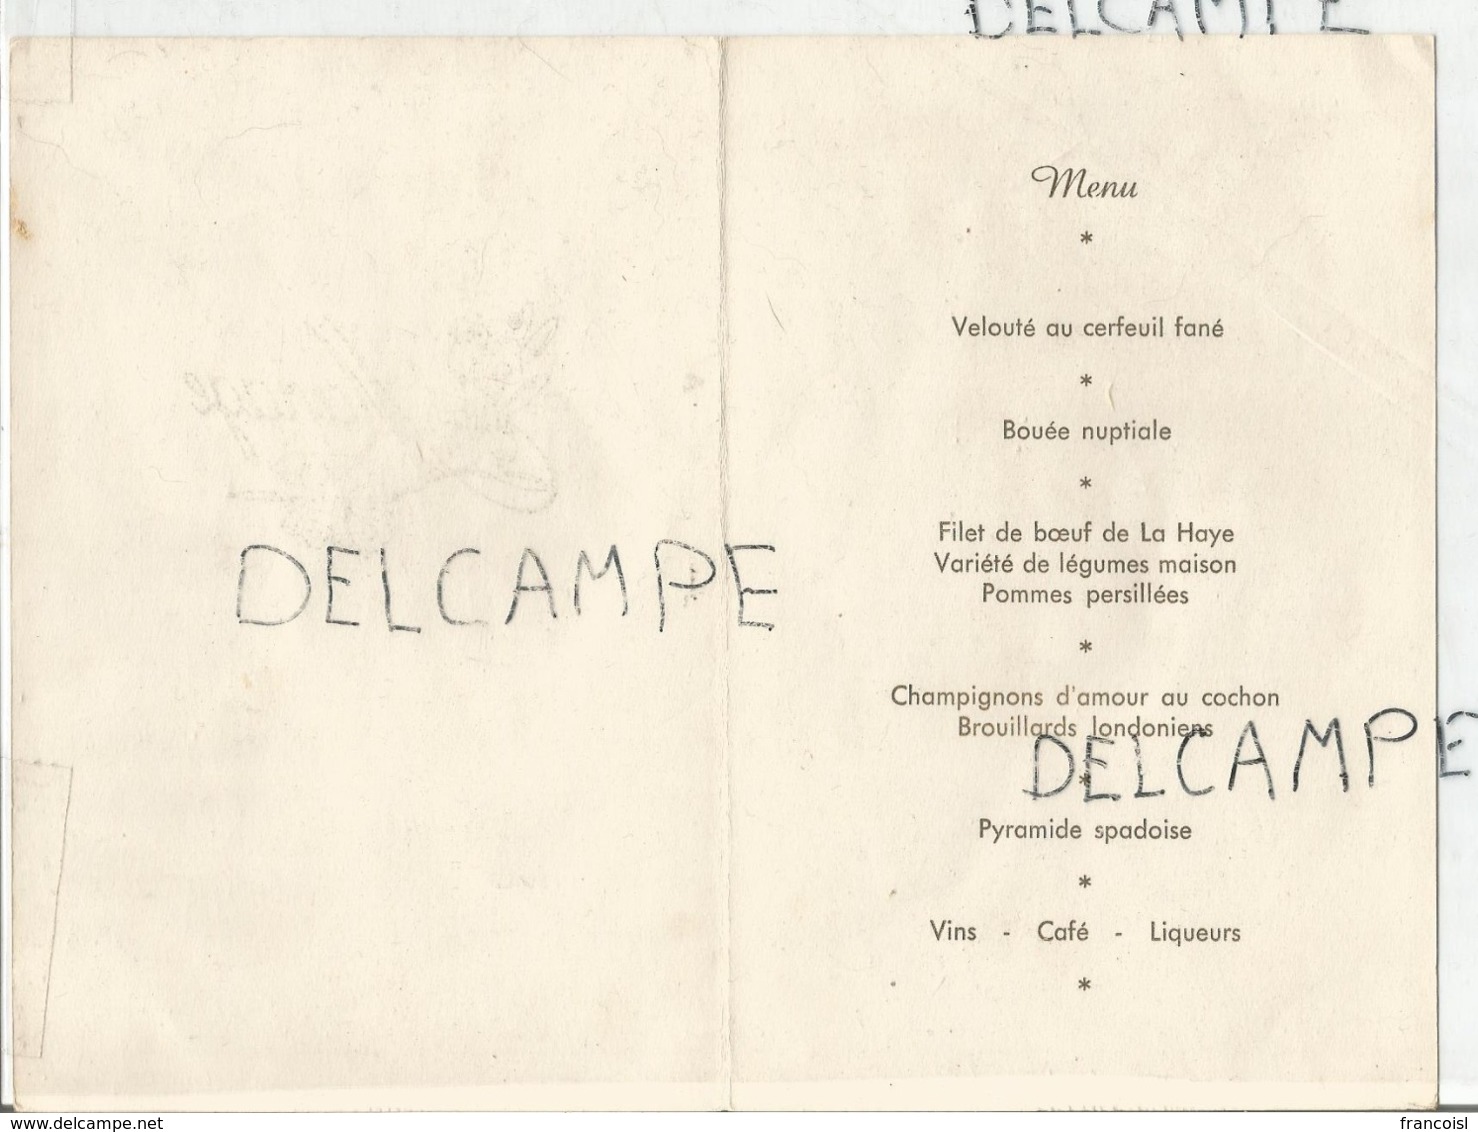 DELCAMPE
Menu
*
Velouté au cerfeuil fané
*
Bouée nuptiale
*
Filet de bœuf de La Haye
Variété de légumes maison
Pommes persillées
*
Champignons d'amour au cochon
Brouillards londoniens
*
Pyramide spadoise
*
Vins - Café - Liqueurs
*
DELCAMPE
DELCAMPE
www.delcampe.net
francoisl